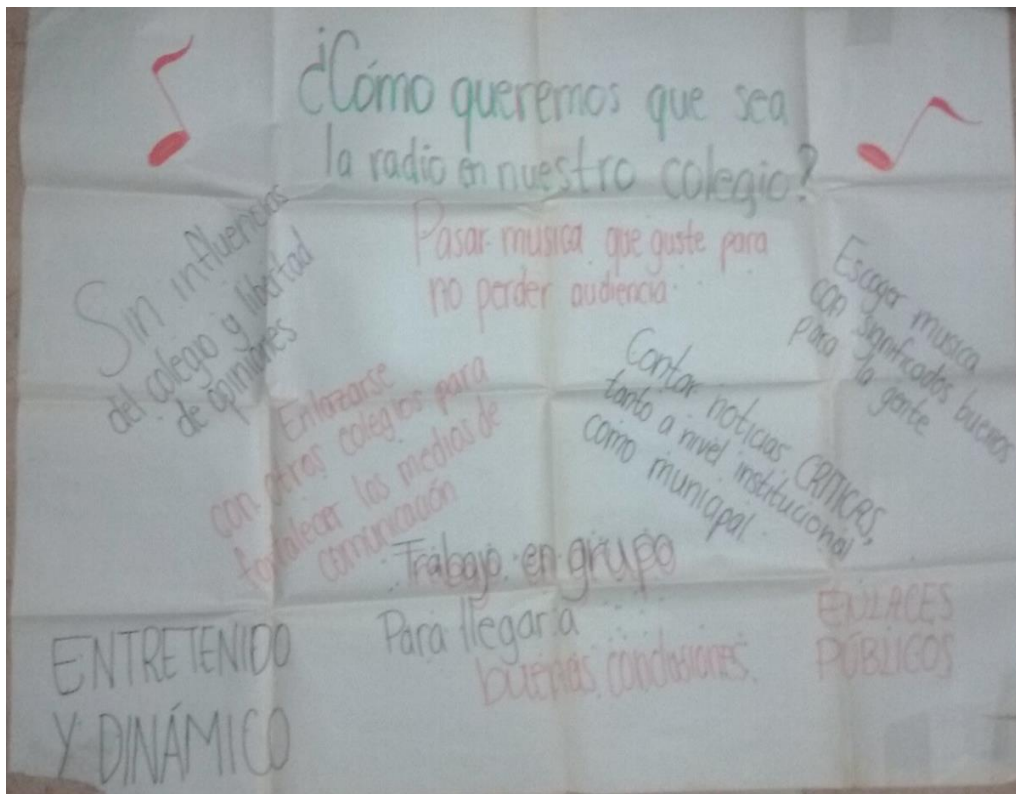 ¿Cómo queremos que sea
la radio en nuestro colegio?
Pasar musica que guste para
no perder audiencia.
Sin influencias
del colegio y libertad
de opiniones
Escoger musica
con significados buenos
para la gente
Enlazarse
con otros colegios para
fortalecer los medios de
comunicación
Contar noticias CRITICAS,
tanto a nivel institucional
como municipal
Trabajo en grupo
Para llegar a
buenas conclusiones.
ENLACES
PÚBLICOS
ENTRETENIDO
Y DINÁMICO